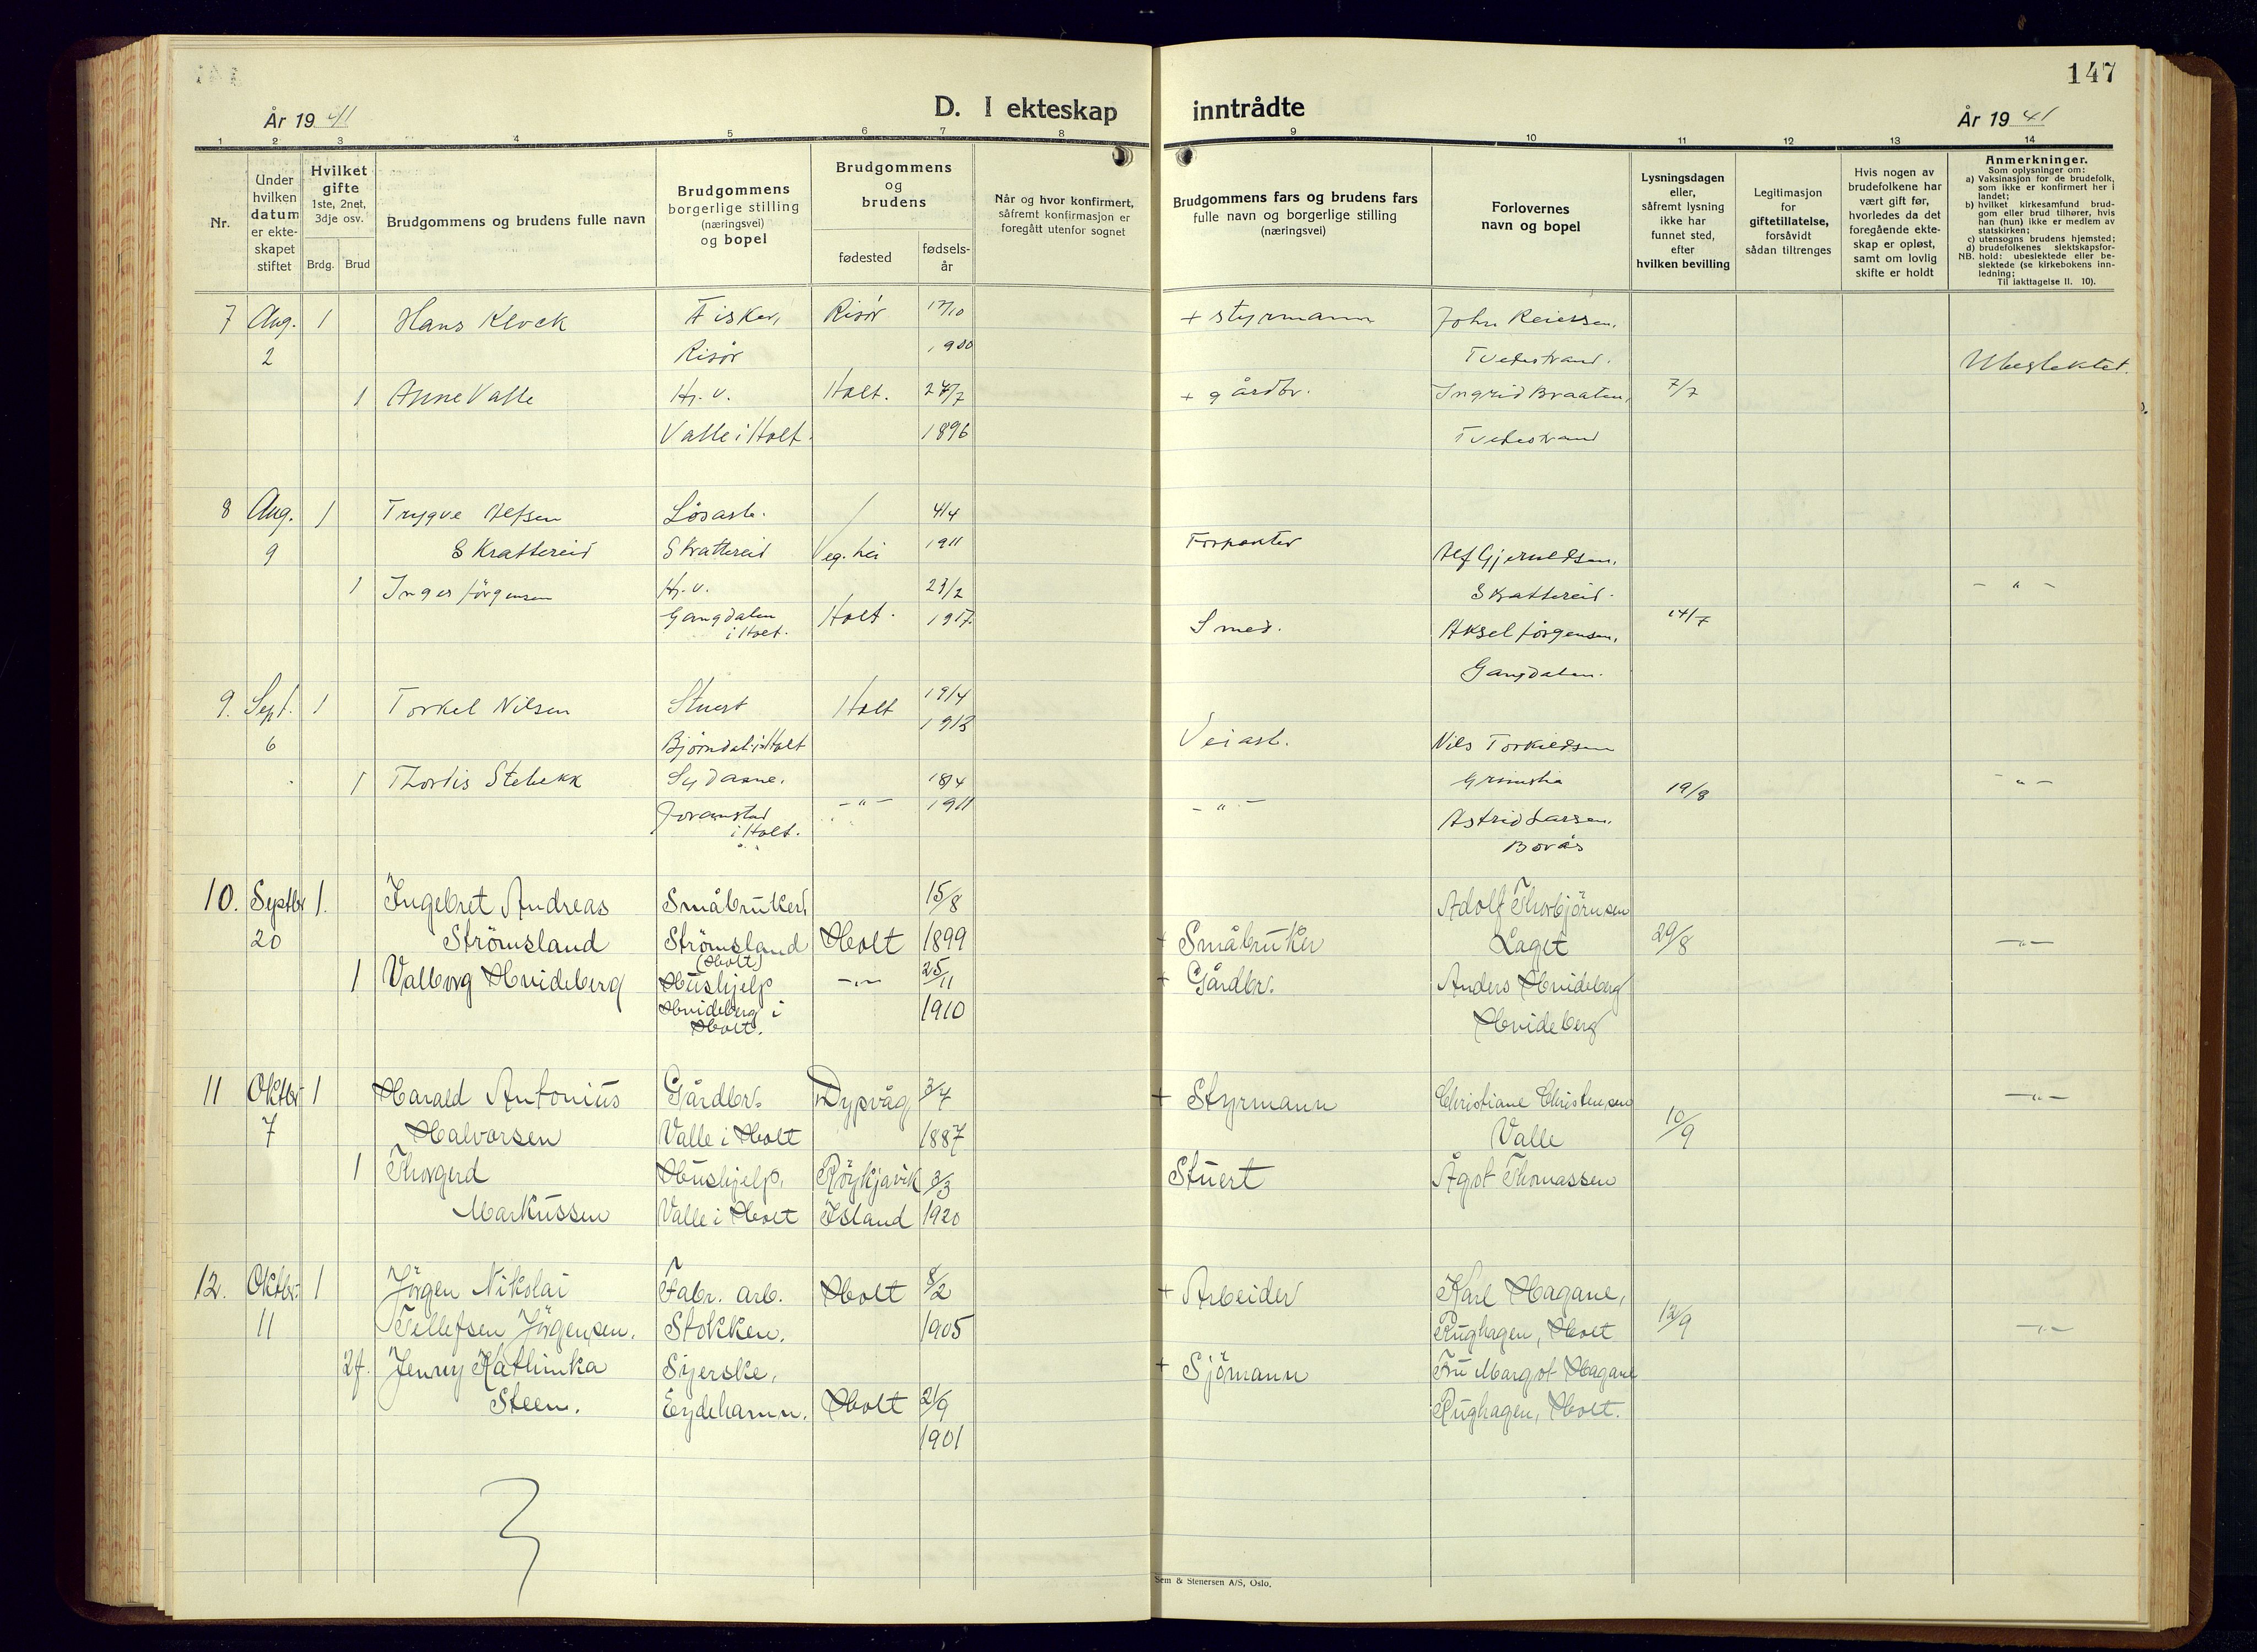 147
År 19 41
D. I ekteskap inntrådte
År 19 41
1 2 3 4 5 6 7 8 9 10 11 12 13 14
Nr.
Under hvilken datum er ekte- skapet stiftet
Hvilket gifte 1ste, 2net, 3dje osv.
Brdg. Brud
Brudgommens og brudens fulle navn
Brudgommens borgerlige stilling (næringsvei) og bopel
Brudgommens og brudens
fødested
fødsels- år
Når og hvor konfirmert, såfremt konfirmasjon er foregått utenfor sognet
Brudgommens fars og brudens fars fulle navn og borgerlige stilling (næringsvei)
Forlovernes navn og bopel
Lysningsdagen eller, såfremt lysning ikke har funnet sted, efter hvilken bevilling
Legitimasjon for giftetillatelse, forsåvidt sådan tiltrenges
Hvis nogen av brudefolkene har vært gift før, hvorledes da det foregående ekte- skap er opløst, samt om lovlig skifte er holdt
Anmerkninger.
Som oplysninger om:
a) Vaksinasjon for de brudefolk, som ikke er konfirmert her i landet;
b) hvilket kirkesamfund brud- gom eller brud tilhører, hvis han (hun) ikke er medlem av statskirken;
c) utensogns brudens hjemsted;
d) brudefolkenes slektskapsfor- hold: ubeslektede eller be- slektede (se kirkebokens inn- ledning;
NB.
Til iakttagelse II. 10).
7 Aug. 1 Hans Klock Fisker, Risør 17/10 + styrmann John Reiersen,
2 Risør 1900 Tvedestrand. Ubeslektet.
1 Anne Valle Hj. v. Holt. 27/7 + gårdbr. Ingrid Braaten, 7/7
Valle i Holt. 1896 Tvedestrand
8 Aug. 1 Trygve Alfsen Løsarb. 4/4
9 Skrattereid Skrattereid Veg.hei 1911 Forpakter Alf Gjeruldsen,
1 Inger Jørgensen Hj. v. 23/2 Skrattereid. - " -
Gangdalen i Holt. Holt. 1917. Smed. Aksel Jørgensen, 14/7
Gangdalen.
9. Sept. 1 Torkel Nilsen Stuert Holt 19/4
1913
6 Bjørndal i Holt Veiarb. Nils Torkildsen
1 Thordis Stebekk Sydame. 18/4 Grimstia 19/8 - " -
Joramstad i Holt. - " - 1911 - " - Astrid Larsen,
Borås
10. Septbr 1. Ingebret Andreas Småbruker, 15/8 Adolf Thorbjörnsen
20 Strömsland Strömsland (Holt) Holt 1899 + Småbruker Laget 29/8 - " -
1 Valborg Hvideberg Hushjelp - " - 25/11 + Gårdbr. Anders Hvideberg
Hvideberg i Holt. 1910 Hvideberg
11 Oktbr 1 Harald Antonius Gårdbr. Dypvåg 3/7 + Styrmann Christiane Christensen - " -
7 Halvorsen Valle i Holt 1887 Valle 10/9
1 Thorgerd Hushjelp, Röykjavik 3/3 Stuert Ågot Thomassen
Markussen Valle i Holt Island 1920
12. Oktbr. 1 Jörgen Nikolai Fabr. arb. Holt 8/2 + Arbeider Karl Hagane,
11 Tellefsen Jörgensen. Stokken. 1905 Rughagen, Holt 12/9 - " -
2f. Jenny Kathinka Syerske, + Sjömann Fru Margot Hagane
Steen. Eydehamn. Holt 21/9 Rughagen, Holt.
1901
Sem & Stenersen A/S, Oslo.